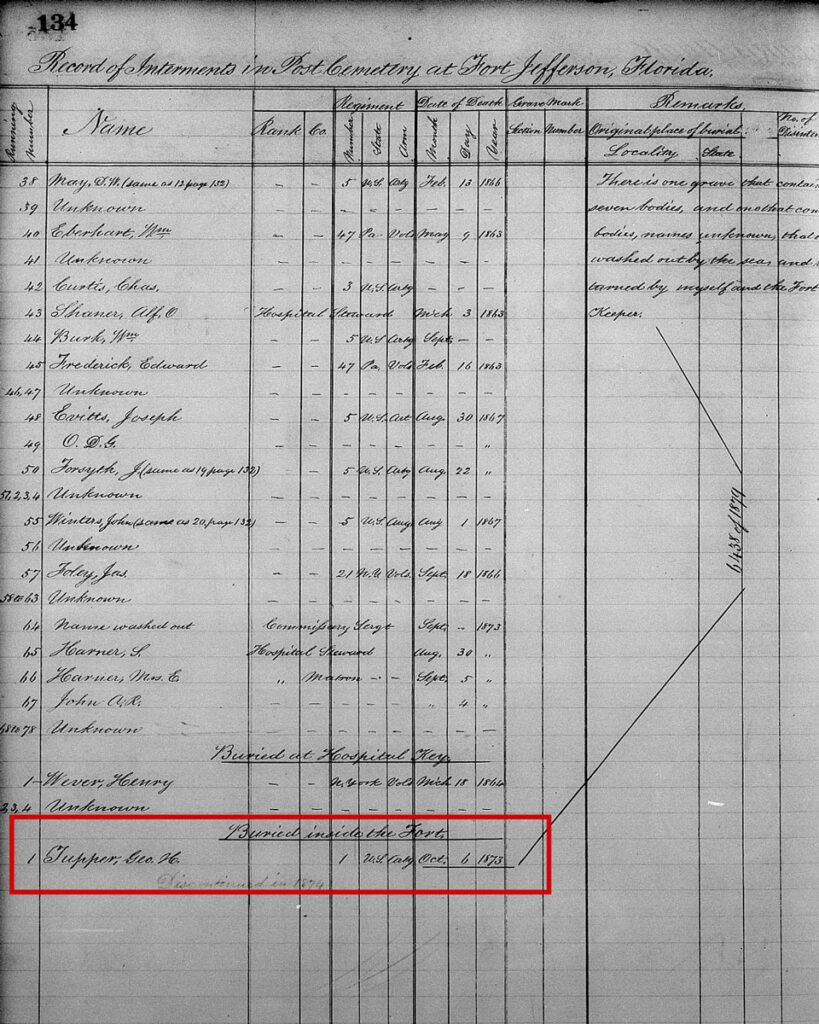 134
Record of Interments in Post Cemetery at Fort Jefferson, Florida.
Running Number Name Rank Co. Regiment Number State Arm Date of Death Month Day Year Grave Mark Section Number Remarks, Original place of burial Locality State No. of
38 May, D.W. (same as 12 page 132) — — 5 U.S. Arty Feb. 13 1866 There is one grave that contain
39 Unknown — — — — — — — — seven bodies, and one that con
40 Eberhart, Wm — — 47 Pa Vols May 9 1863 bodies, names unknown, that
41 Unknown — — — — — — — — washed out by the sea, and
42 Curtis, Chas. — — 3 U.S. Arty — — — by myself and the Fort
43 Shaner, Alf. O Hospital Steward Mch 3 1863 Keeper.
44 Burk, Wm — — 5 U.S. Arty Sept. — —
45 Frederick, Edward — — 47 Pa. Vols Feb. 16 1863
46,47 Unknown — — — — — — — —
48 Evitts, Joseph — — 5 U.S. Art Aug. 30 1867
49 O.D.G. — — — — — — — "
50 Forsyth, J. (same as 19 page 132) — 5 U.S. Arty Aug 22 "
51,2,3,4 Unknown — — — — — — — —
55 Winters, John (same as 20, page 132) — 5 U.S. Aug. Aug 1 1867
56 Unknown — — — — — — — —
57 Foley, Jas. — — 21 Vols. Sept. 18 1866
58 to 63 Unknown — — — — — — — —
64 Name washed out Commissery Sergt Sept. — 1873
65 Harner, S. Hospital Steward Aug. 30 "
66 Harner, Mrs. E. " Matron — — Sept. 5 "
67 John A.R. — — — — — " 4 "
68 to 78 Unknown — — — — — — — —
6438 of 1879
Buried at Hospital Key,
1 Wever, Henry — — N. York Vols Mch 18 1864
2,3,4 Unknown — — — — — — — —
Buried inside the Fort,
1 Tupper, Geo. H. 1 U.S. Arty Oct. 6 1873
Discontinued in 1879